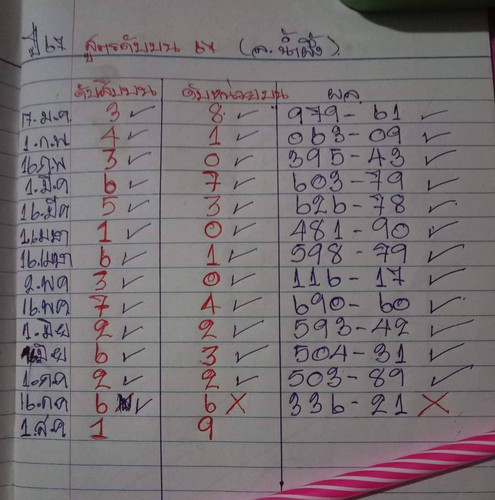 ปี 67 สูตรดับบน 67 (อ. น้ำผึ้ง)
ดับสิบบน ดับหน่วยบน ผล
17.ม.ค 3 ✓ 8 ✓ 979-61 ✓
1.ก.พ 4 ✓ 1 ✓ 063-09 ✓
16.ก.พ 3 ✓ 0 ✓ 395-43 ✓
1.มี.ค 6 ✓ 7 ✓ 603-79 ✓
16.มี.ค 5 ✓ 3 ✓ 626-78 ✓
1.เมษา 1 ✓ 0 ✓ 481-90 ✓
16.เมษา 6 ✓ 1 ✓ 598-79 ✓
2.พ.ค 3 ✓ 0 ✓ 116-17 ✓
16.พ.ค 7 ✓ 4 ✓ 690-60 ✓
1.มิ.ย 2 ✓ 2 ✓ 593-42 ✓
มิ.ย 6 ✓ 3 ✓ 504-31 ✓
1.ก.ค 2 ✓ 2 ✓ 503-89 ✓
16.ก.ค 6 ✓ 6 X 336-21 X
1.ส.ค 1 9